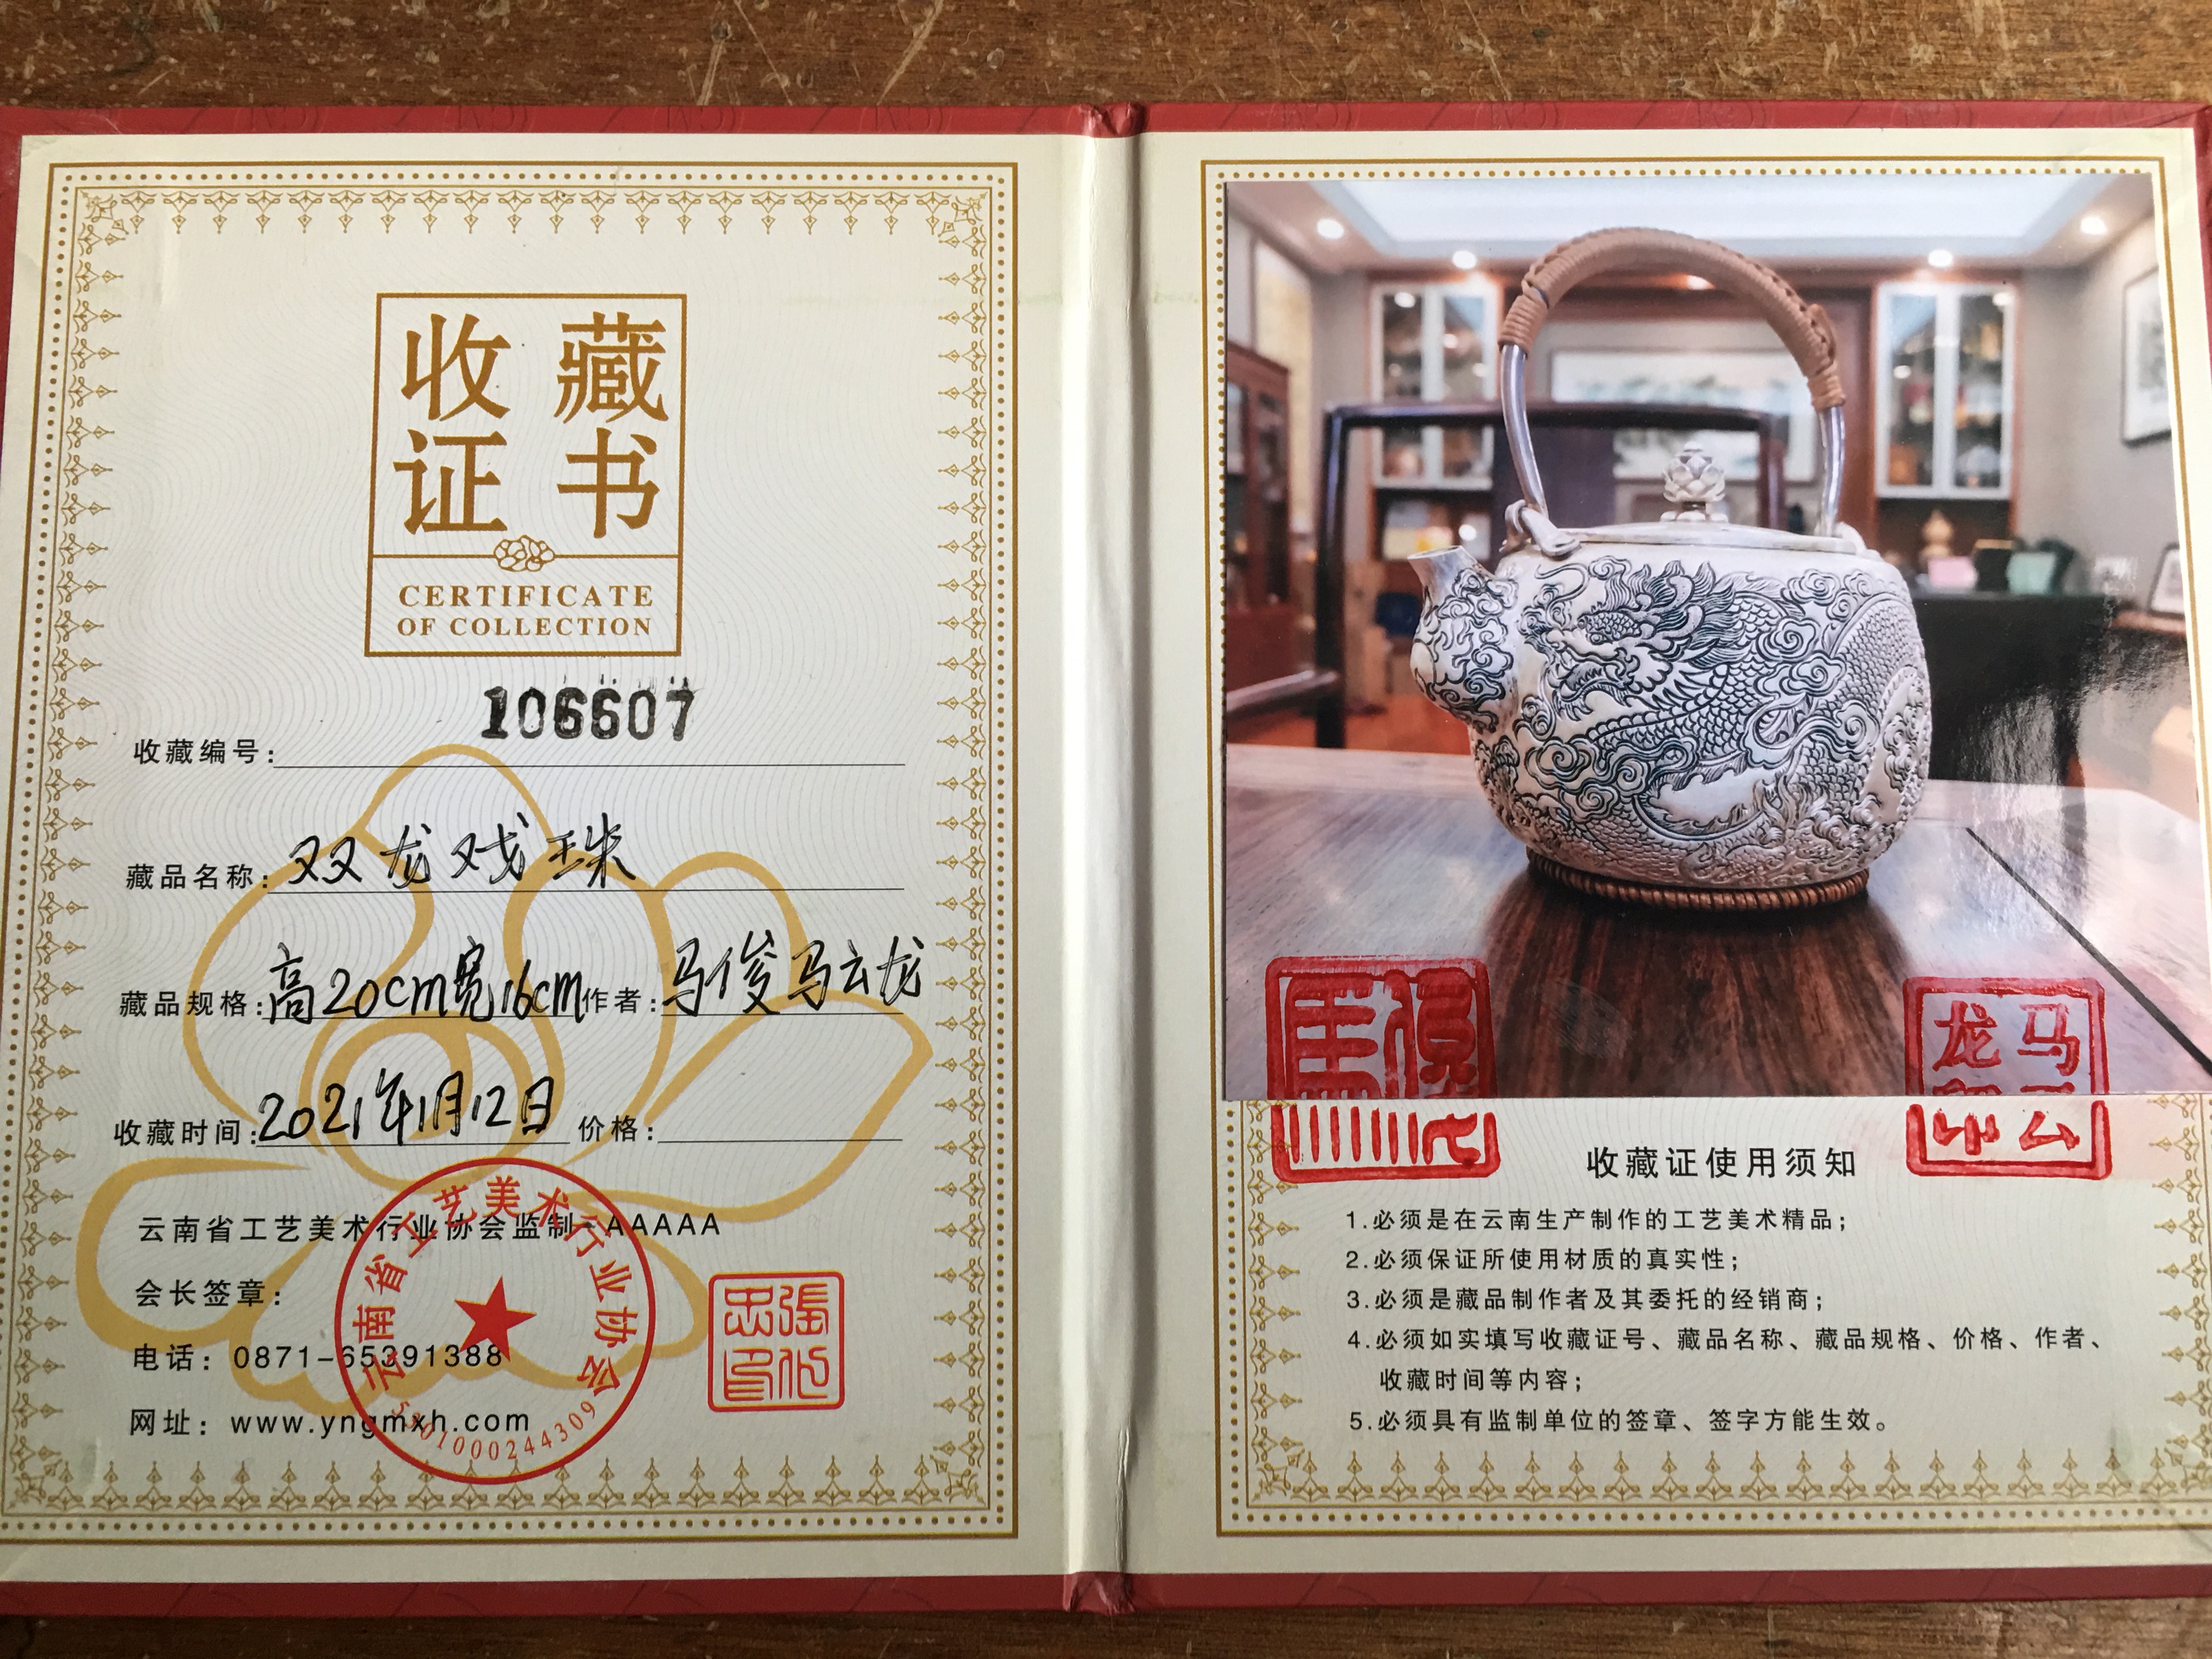 收藏
证书
CERTIFICATE
OF COLLECTION
106607
收藏编号:
藏品名称: 双龙戏珠
藏品规格: 高20cm宽16cm 作者: 马俊马云龙
收藏时间: 2021年1月12日 价格:
云南省工艺美术行业协会监制-AAAAA
会长签章:
电话: 0871-65391388
网址: www.yngmxh.com
云南省工艺美术行业协会
张忠
马俊
马云龙印
收藏证使用须知
1.必须是在云南生产制作的工艺美术精品;
2.必须保证所使用材质的真实性;
3.必须是藏品制作者及其委托的经销商;
4.必须如实填写收藏证号、藏品名称、藏品规格、价格、作者、
收藏时间等内容;
5.必须具有监制单位的签章、签字方能生效。